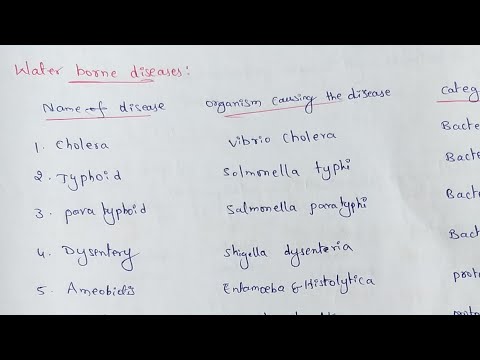 Water borne diseases:
Name of disease organism causing the disease categ
1. Cholera Vibrio cholera Bacte
2. Typhoid Salmonella typhi Bacte
3. para typhoid Salmonella paratyphi Bacte
4. Dysentery shigella dysenteria Bact
5. Entamoeba Histolytica prot